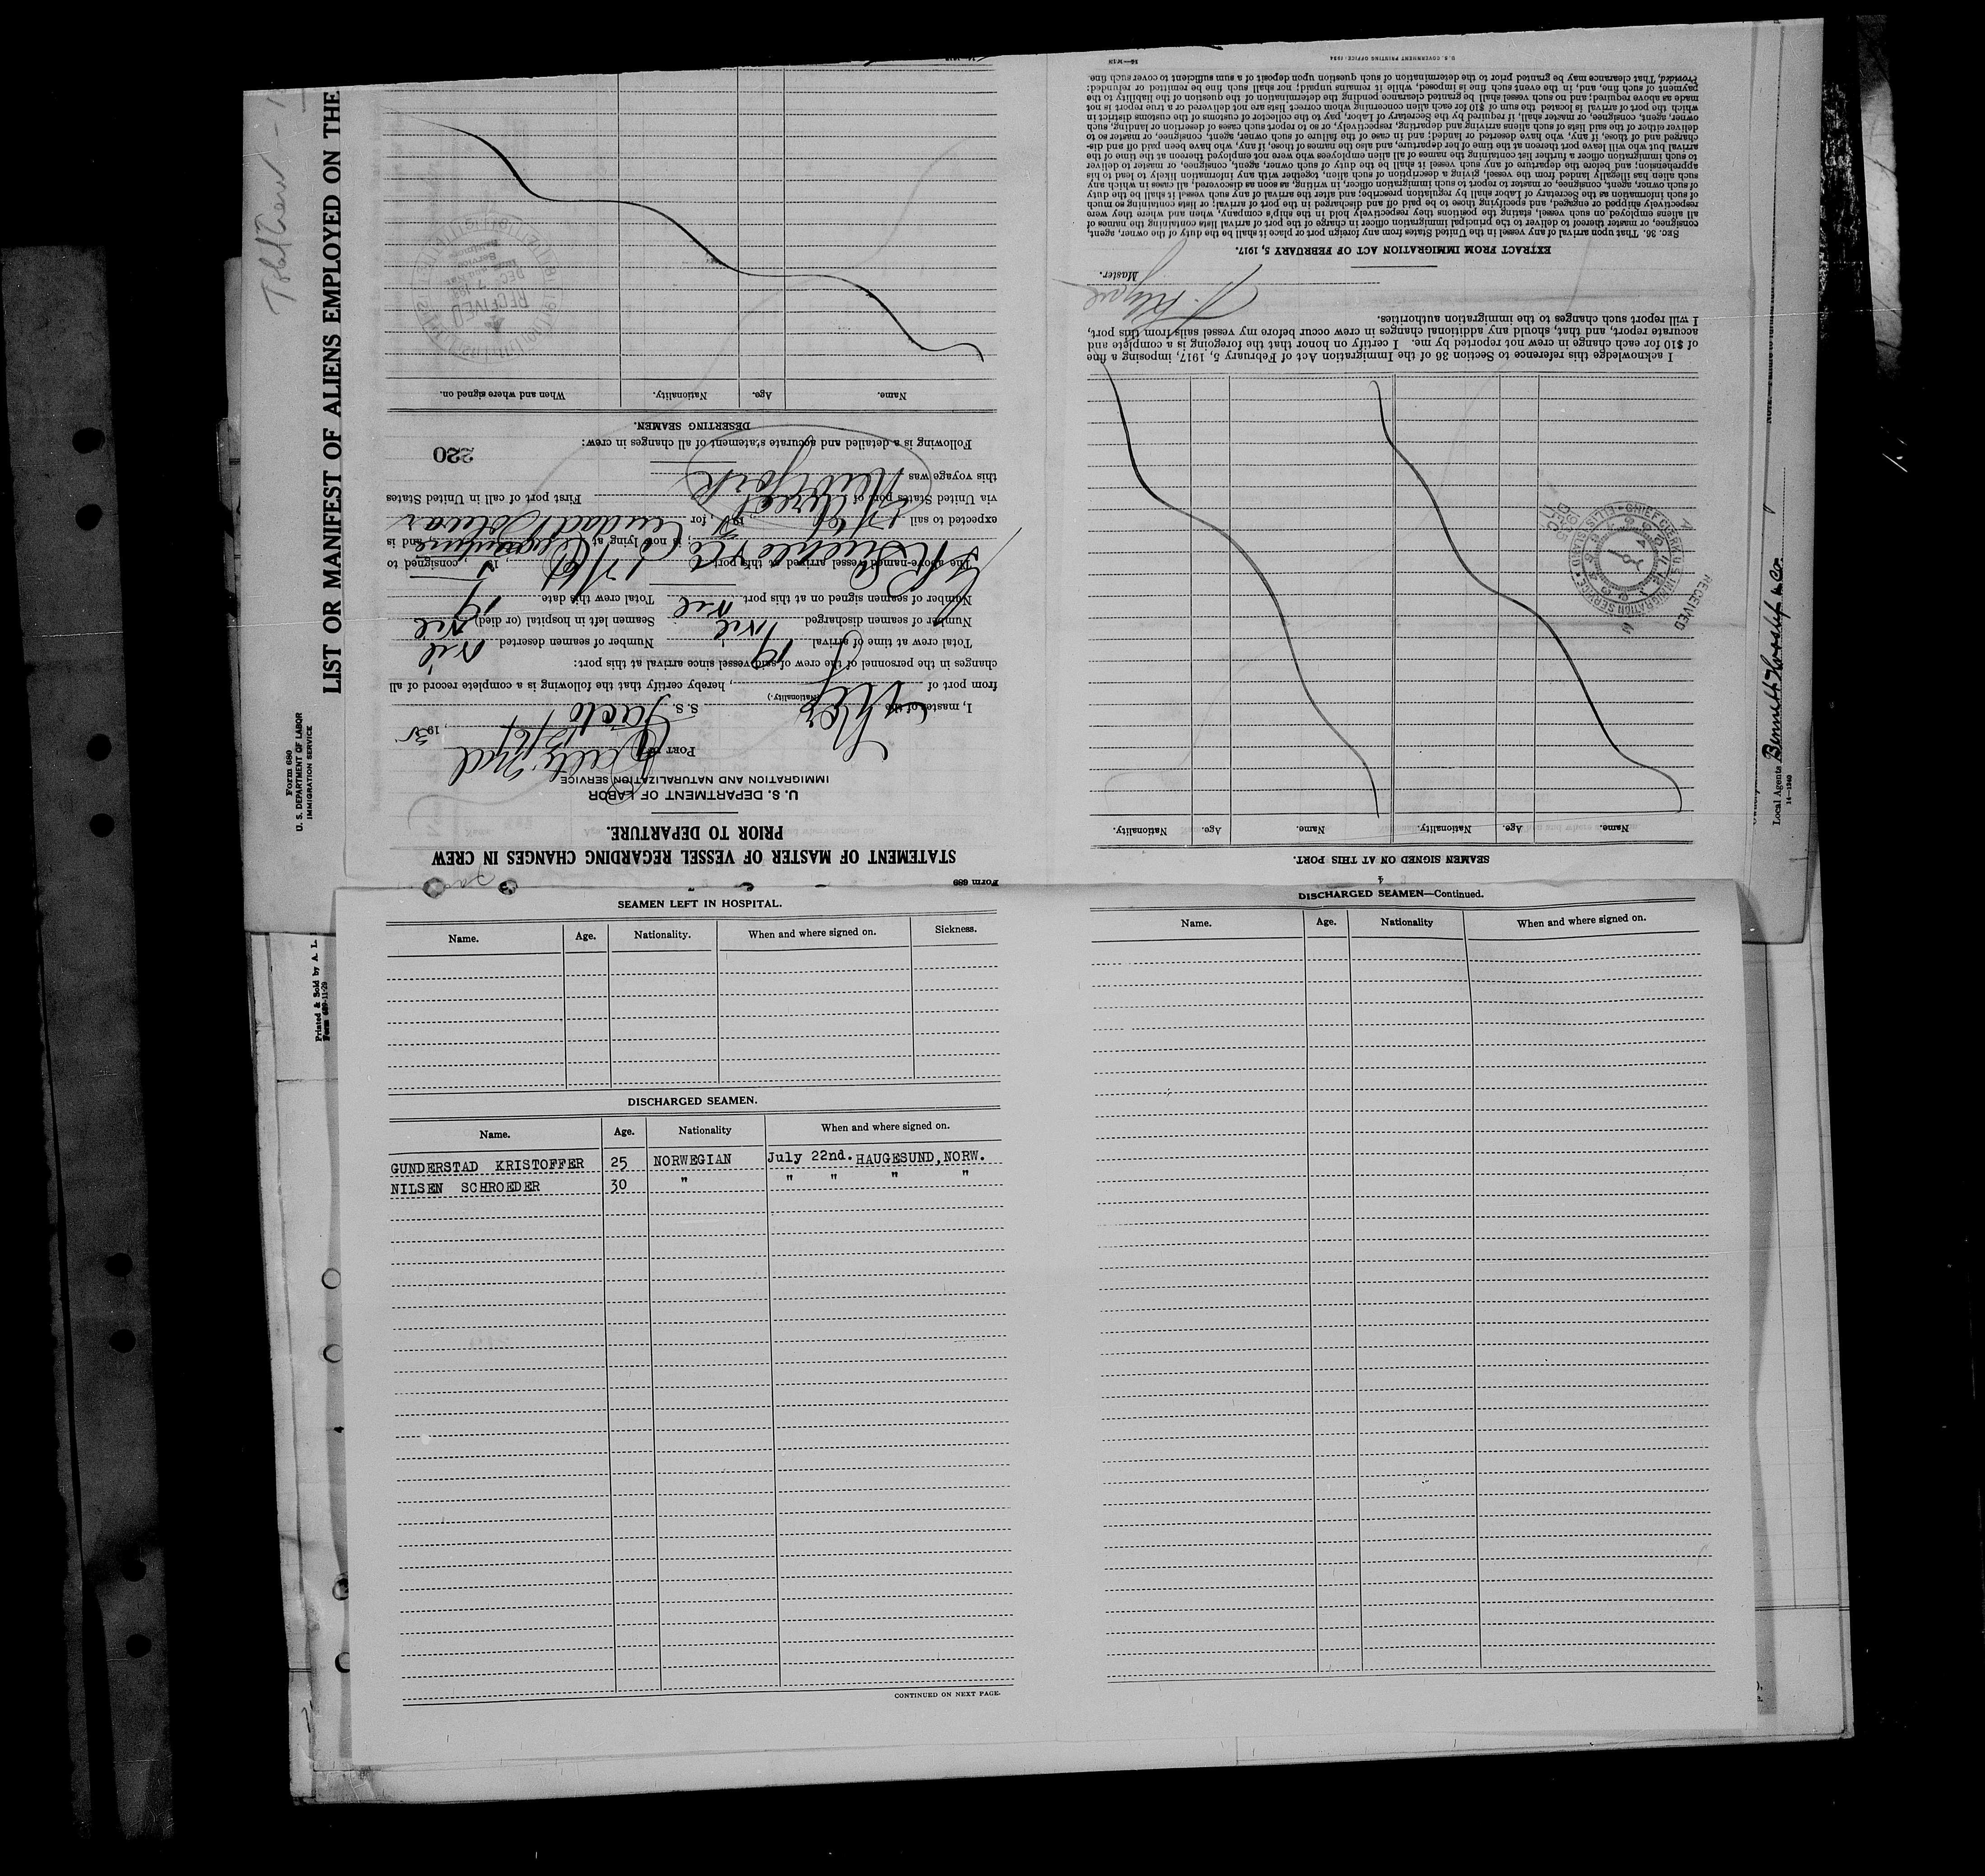 LIST OR MANIFEST OF ALIENS EMPLOYED ON THE
Total Crew -
Form 680
U. S. DEPARTMENT OF LABOR
IMMIGRATION SERVICE
Printed & Sold by A. L.
Form 689-11-29
Local Agents Bennett Hvoslef & Co.
14—1240
Form 689
STATEMENT OF MASTER OF VESSEL REGARDING CHANGES IN CREW
PRIOR TO DEPARTURE.
U. S. DEPARTMENT OF LABOR
IMMIGRATION AND NATURALIZATION SERVICE
PORT OF
, 193
I, master of the S. S.
(Nationality.)
from port of , hereby certify that the following is a complete record of all
changes in the personnel of the crew of said vessel since arrival at this port:
Total crew at time of arrival 19 Number of seamen deserted nil
Number of seamen discharged nil Seamen left in hospital (or died) nil
Number of seamen signed on at this port nil Total crew this date 19
The above-named vessel arrived at this port , 19 , consigned to
, is now lying at , and is
expected to sail , 19 , for Ciudad Bolivar
via United States port of First port of call in United States
this voyage was New York
Following is a detailed and accurate statement of all changes in crew:
220
DESERTING SEAMEN.
Name. Age. Nationality. When and where signed on.
RECEIVED
DEC 7
SEAMEN SIGNED ON AT THIS PORT.
Name. Age. Nationality. Name. Age. Nationality.
RECEIVED
CHIEF CLERK U.S. IMMIGRATION SERVICE ELLIS ISLAND
I acknowledge this reference to Section 36 of the Immigration Act of February 5, 1917, imposing a fine
of $10 for each change in crew not reported by me. I certify on honor that the foregoing is a complete and
accurate report, and that, should any additional changes in crew occur before my vessel sails from this port,
I will report such changes to the immigration authorities.
Master.
EXTRACT FROM IMMIGRATION ACT OF FEBRUARY 5, 1917.
SEC. 36. That upon arrival of any vessel in the United States from any foreign port or place it shall be the duty of the owner, agent,
consignee, or master thereof to deliver to the principal immigration officer in charge of the port of arrival lists containing the names of
all aliens employed on such vessel, stating the positions they respectively hold in the ship's company, when and where they were
respectively shipped or engaged, and specifying those to be paid off and discharged in the port of arrival; or lists containing so much
of such information as the Secretary of Labor shall by regulation prescribe; and after the arrival of any such vessel it shall be the duty
of such owner, agent, consignee, or master to report to such immigration officer, in writing, as soon as discovered, all cases in which any
such alien has illegally landed from the vessel, giving a description of such alien, together with any information likely to lead to his
apprehension; and before the departure of any such vessel it shall be the duty of such owner, agent, consignee, or master to deliver
to such immigration officer a further list containing the names of all alien employees who were not employed thereon at the time of the
arrival but who will leave port thereon at the time of her departure, and also the names of those, if any, who have been paid off and dis-
charged and of those, if any, who have deserted or landed; and in case of the failure of such owner, agent, consignee, or master so to
deliver either of the said lists of such aliens arriving and departing, respectively, or so to report such cases of desertion or landing, such
owner, agent, consignee, or master shall, if required by the Secretary of Labor, pay to the collector of customs of the customs district in
which the port of arrival is located the sum of $10 for each alien concerning whom correct lists are not delivered or a true report is not
made as above required; and no such vessel shall be granted clearance pending the determination of the question of the liability to the
payment of such fine, and, in the event such fine is imposed, while it remains unpaid; nor shall such fine be remitted or refunded:
Provided, That clearance may be granted prior to the determination of such question upon deposit of a sum sufficient to cover such fine.
U. S. GOVERNMENT PRINTING OFFICE: 1934
SEAMEN LEFT IN HOSPITAL.
Name. Age. Nationality. When and where signed on. Sickness.
DISCHARGED SEAMEN.
Name. Age. Nationality When and where signed on.
GUNDERSTAD KRISTOFFER 25 NORWEGIAN July 22nd. HAUGESUND, NORW.
NILSEN SCHROEDER 30 " " " " "
CONTINUED ON NEXT PAGE.
4
DISCHARGED SEAMEN—Continued.
Name. Age. Nationality When and where signed on.